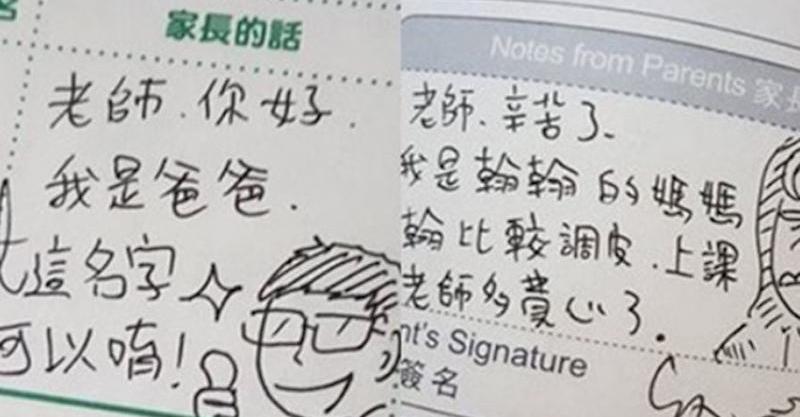 家長的話
老師、你好.
我是爸爸.
這名字
可以唷!
Notes from Parents 家長
老師、辛苦了、
我是翰翰的媽媽
翰比較調皮、上課
老師多費心了.
nt's Signature
簽名